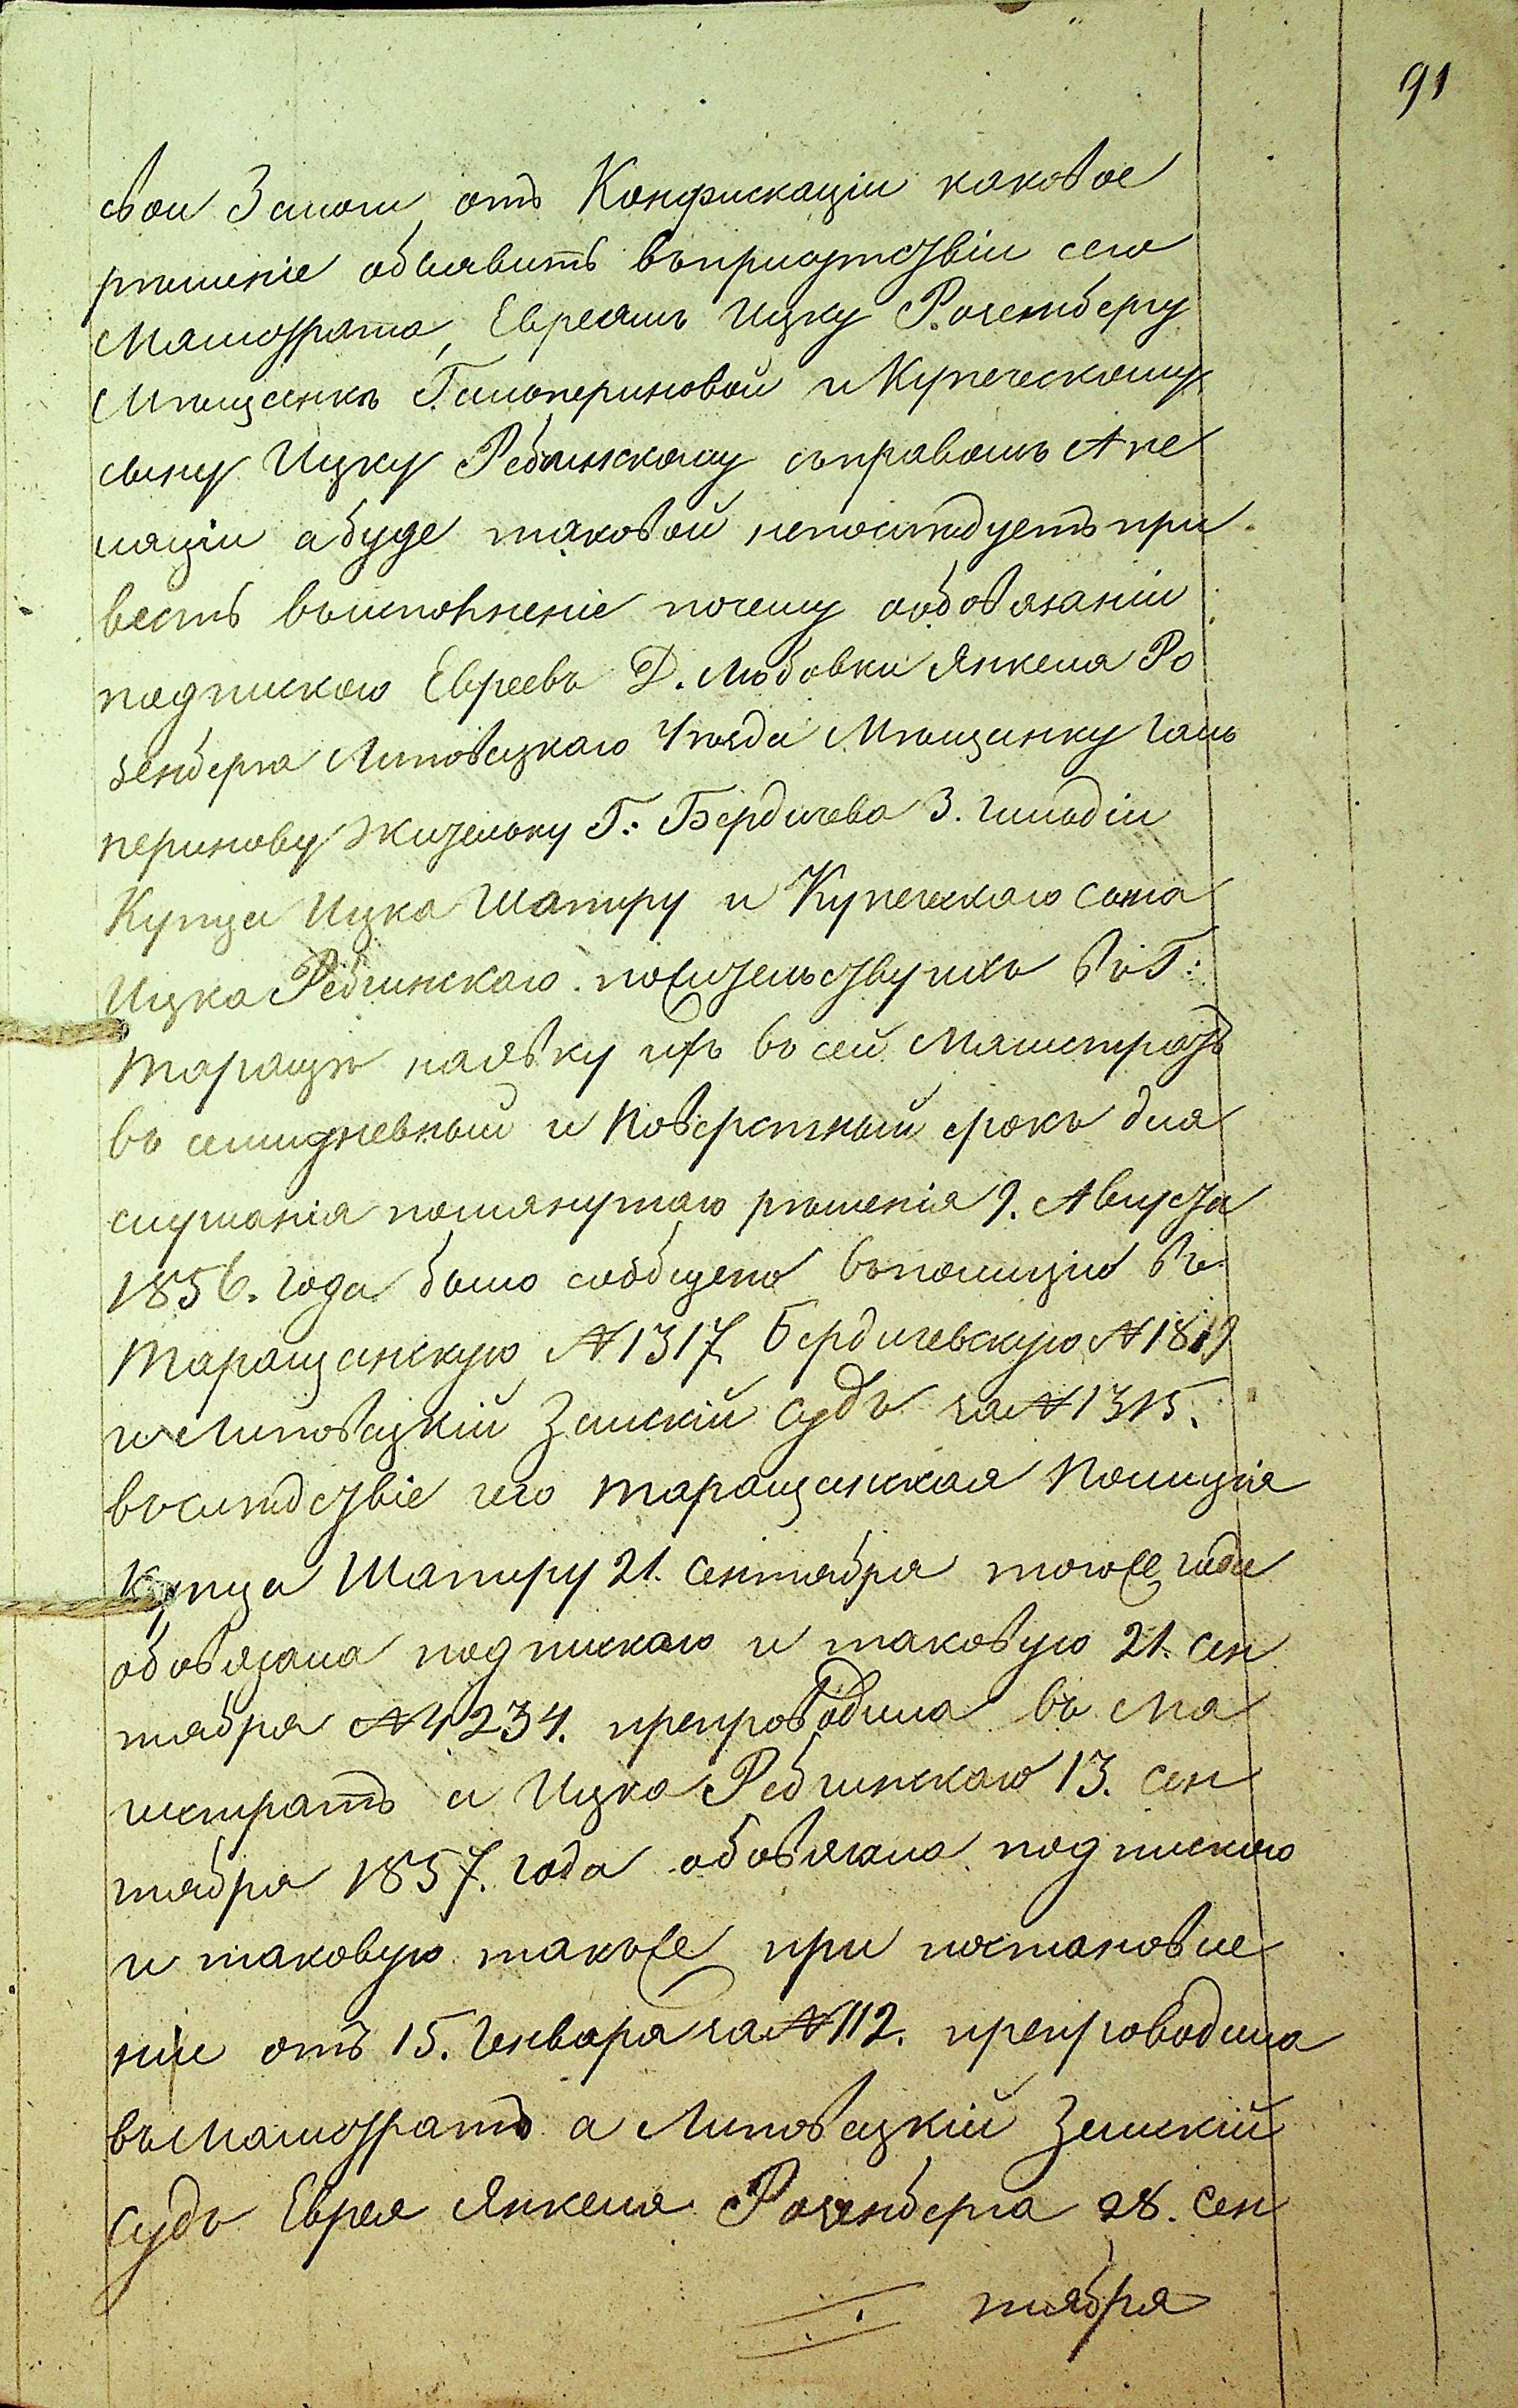 91
свои Залоги отъ Конфискаціи каковое
рѣшеніе объявить въприсутствіи сего
Магистрата, Евреямъ Ицку Розенбергу
Мѣщанкѣ Гальпериновой и Купеческому
сыну Ицку Ребшнскому съправомъ Апе
ляціи абуде таковой непослѣдуетъ при
весть въисполненіе почему ообовязаніи
подпискою Евреевъ Д. Любовки Янкеля Ро
зенберга Липовецкаго Уѣзда Мѣщанку Галь
перинову Жительку Г: Бердичева 3. гильдіи
Купца Ицка Шапиру и Купеческаго сына
Ицка Ребшнскаго. пожительствуихъ въ Г:
Таращѣ наявку ихъ въ сей Магистратъ
въ семидневный и Поверстный срокъ для
слушанія помянутаго рѣшенія 9. Августа
1856. года было сообщено въполицію въ
Таращанскую №1317. Бердичевскую №
и Липовецкій Земскій Судъ за №1315.
въслѣдствіе чего Таращанская Полиція
Купца Шапиру 21. Сентября тогоже года
обовязала подпискою и таковую 21. Сен
тября №4234. препроводила въ Ма
гистратъ а Ицка Ребшнскаго 13. Сен
тября 1857. года обовязала подпискою
и таковую также при постановле
ніи отъ 15. Генваря за №112. препроводила
въМагистратъ а Липовецкій Земскій
Судъ Еврея Янкеля Розенберга 28. Сен
тября